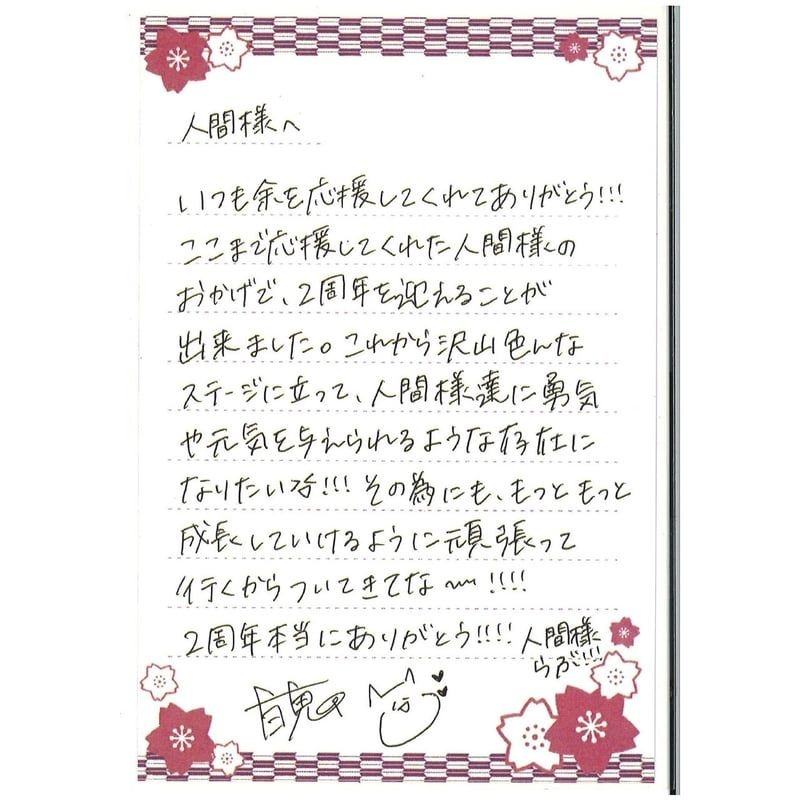 人間様へ
いつも余を応援してくれてありがとう!!!
ここまで応援してくれた人間様の
おかげで、2周年を迎えることが
出来ました。これから沢山色んな
ステージに立って、人間様達に勇気
や元気を与えられるような存在に
なりたいぞ!!!その為にも、もっともっと
成長していけるように頑張って
行くからついてきてな〜!!!!
2周年本当にありがとう!!!!人間様
らぶ!!!
百鬼